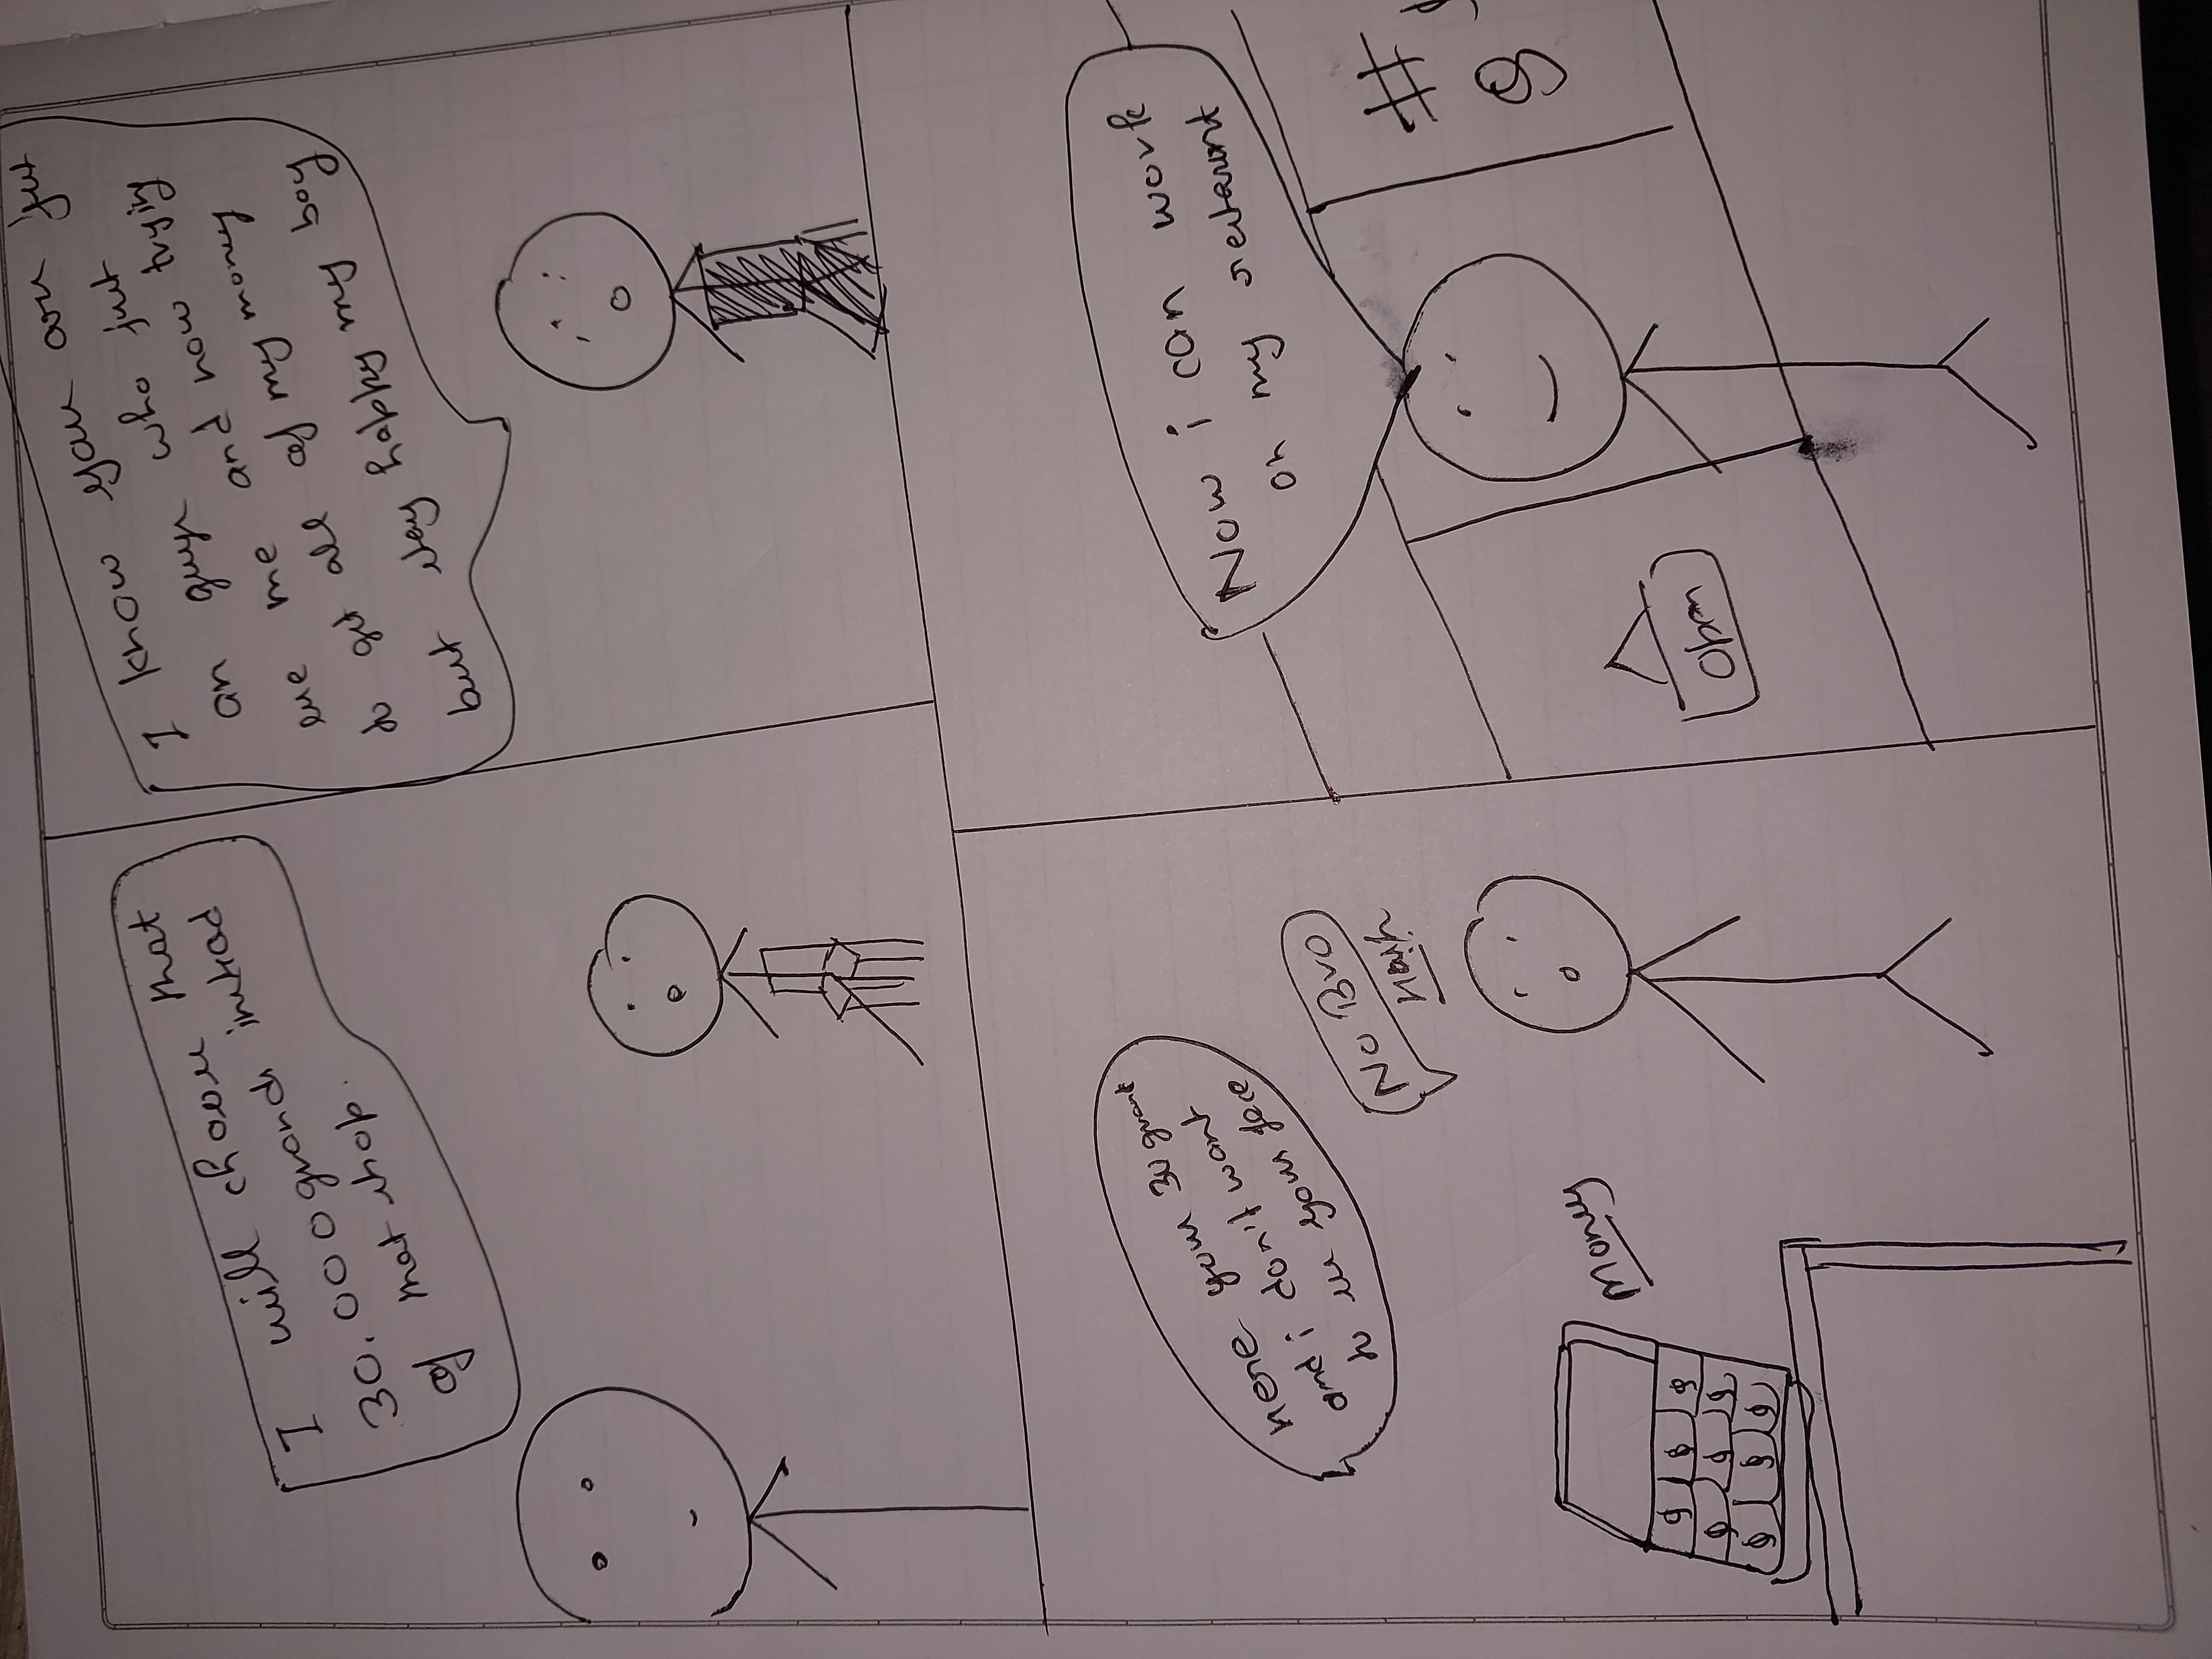 I will choose that
30.000 grands instead
of that shop.
I know you are just
an guys who just
use me and now trying
to get all of my money
but stay happy my boy
here your 30 grand
and i don't want
to see your face
No Bro
Money
Now i can work
on my restarunt
Open
#